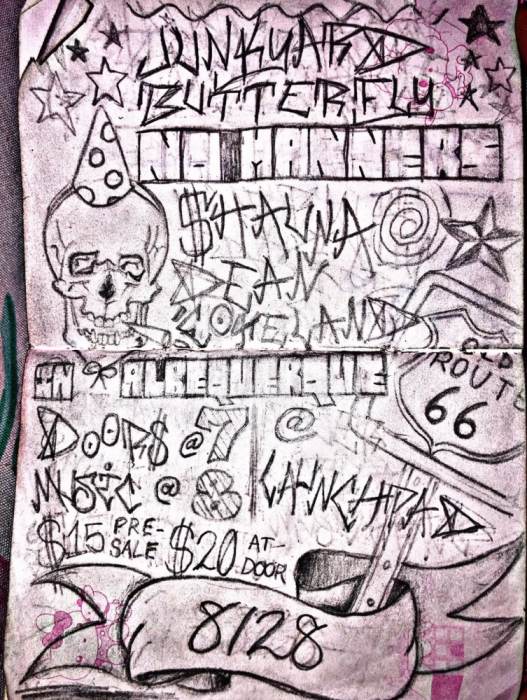 JUNKYARD
BUTTERFLY
NO MANNERS
$HAUNA
DEAN
COKELAND
IN ALBEQUERQUE
OLD
ROUTE
66
DOOR$ @ 7
MUSIC @ 8
@
LAUNCHPAD
$15 PRE-SALE $20 AT-DOOR
8/28